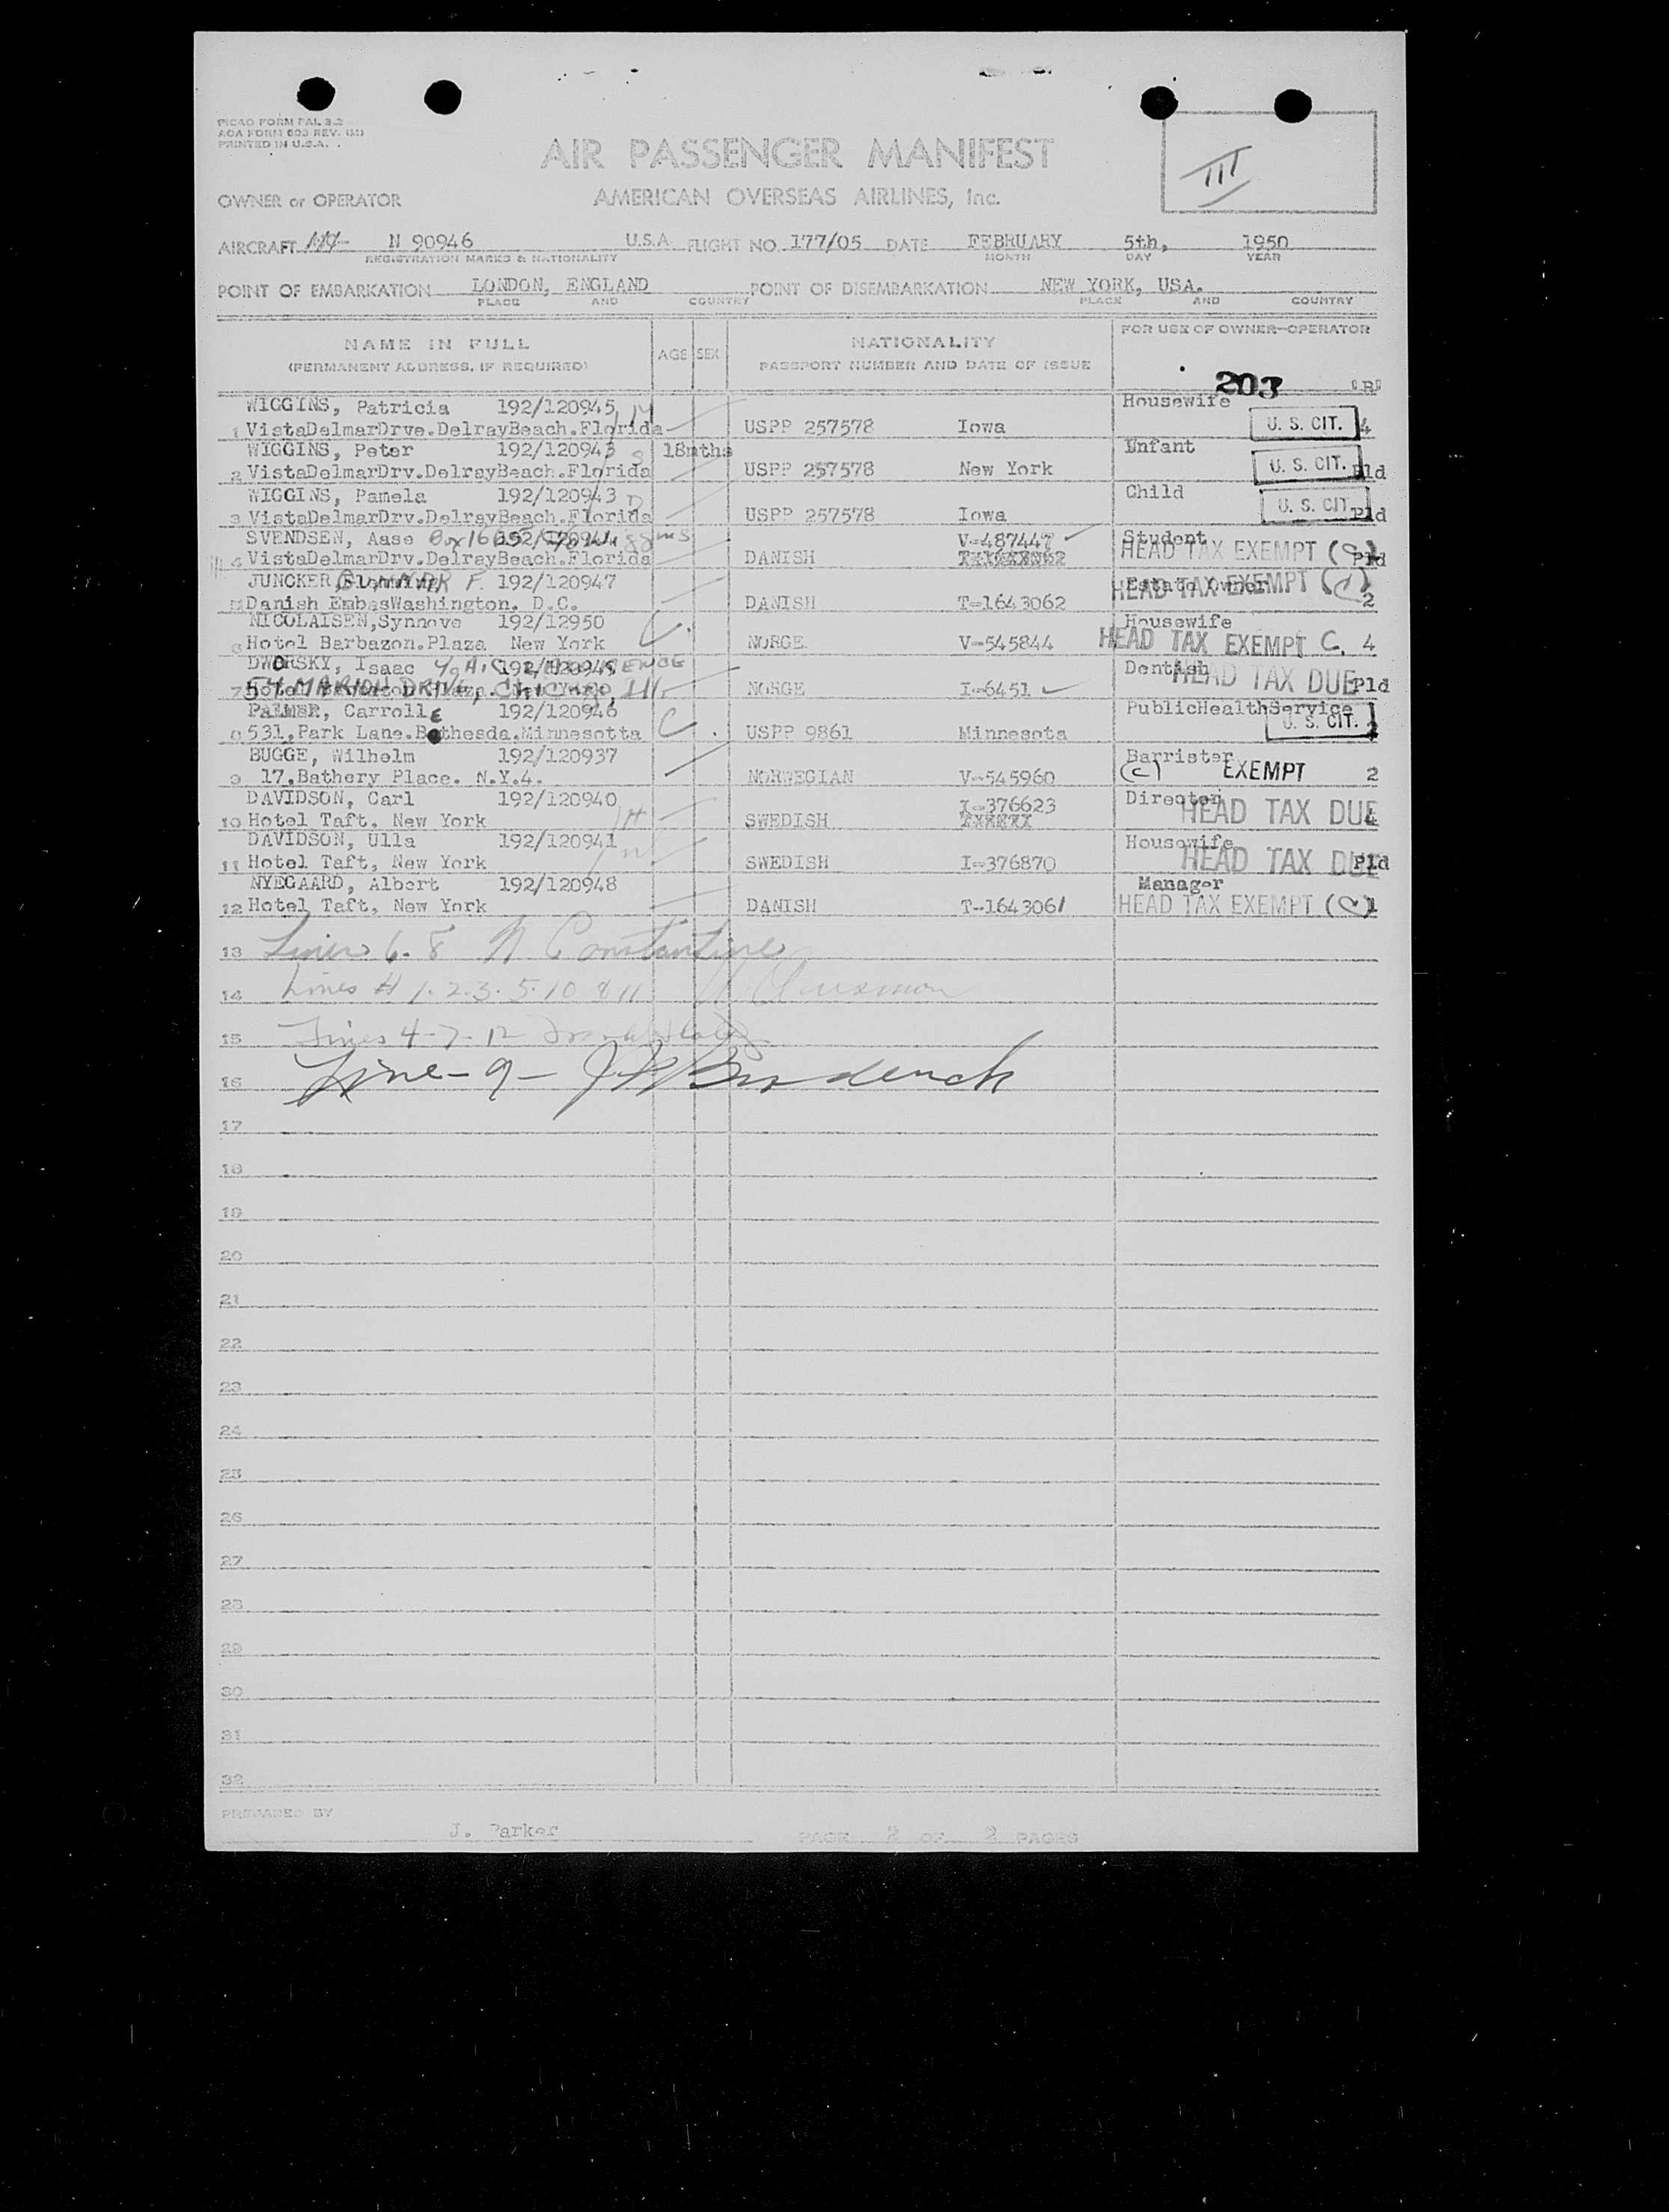 PICAO FORM PAL 3.2
AOA FORM 603 REV.
PRINTED IN U.S.A.
III
AIR PASSENGER MANIFEST
OWNER or OPERATOR AMERICAN OVERSEAS AIRLINES, Inc.
AIRCRAFT N 90946 U.S.A. FLIGHT NO. 177/05 DATE FEBRUARY 5th, 1950
REGISTRATION MARKS & NATIONALITY MONTH DAY YEAR
POINT OF EMBARKATION LONDON, ENGLAND POINT OF DISEMBARKATION NEW YORK, USA.
PLACE AND COUNTRY PLACE AND COUNTRY
NAME IN FULL AGE SEX NATIONALITY FOR USE OF OWNER-OPERATOR
(PERMANENT ADDRESS, IF REQUIRED) PASSPORT NUMBER AND DATE OF ISSUE
203
WIGGINS, Patricia 192/120945 Housewife
1 VistaDelmarDrve.DelrayBeach.Florida USPP 257578 Iowa U. S. CIT. 4
WIGGINS, Peter 192/120943 18mths Enfant
2 VistaDelmarDrv.DelrayBeach.Florida USPP 257578 New York U. S. CIT. Pld
WIGGINS, Pamela 192/120943 Child
3 VistaDelmarDrv.DelrayBeach.Florida USPP 257578 Iowa U. S. CIT. Pld
SVENDSEN, Aase V-487447 Student
4 VistaDelmarDrv.DelrayBeach.Florida DANISH HEAD TAX EXEMPT (C) Pld
JUNCKER, F. 192/120947 Estate Owner
5 Danish EmbasWashington. D.C. DANISH T-1643062 HEAD TAX EXEMPT (C) 2
NICOLAISEN,Synnove 192/12950 Housewife
6 Hotel Barbazon.Plaza New York C. NORGE. V-545844 HEAD TAX EXEMPT C. 4
DWORSKY, Isaac 192/120949 Dentish
7 54 MARION DRIVE, Chicago, Ill. NORGE I-6451 HEAD TAX DUE Pld
PALMER, Carrolle 192/120946 PublicHealthService
8 531,Park Lane.Bethesda.Minnesotta C. USPP 9861 Minnesota U. S. CIT.
BUGGE, Wilhelm 192/120937 Barrister
9 17,Bathery Place. N.Y.4. NORWEGIAN V-545960 (C) EXEMPT 2
DAVIDSON, Carl 192/120940 I-376623 Director
10 Hotel Taft, New York SWEDISH HEAD TAX DUE
DAVIDSON, Ulla 192/120941 Housewife
11 Hotel Taft, New York SWEDISH I-376870 HEAD TAX DUE Pld
NYEGAARD, Albert 192/120948 Manager
12 Hotel Taft, New York DANISH T-1643061 HEAD TAX EXEMPT (C) 1
13 Lines 6-8 N Constantine
14 Lines # 1-2-3-5-10 & 11
15 Lines 4-7-12
16 Line-9-
17
18
19
20
21
22
23
24
25
26
27
28
29
30
31
32
PREPARED BY
J. Parker PAGE 2 OF 2 PAGES